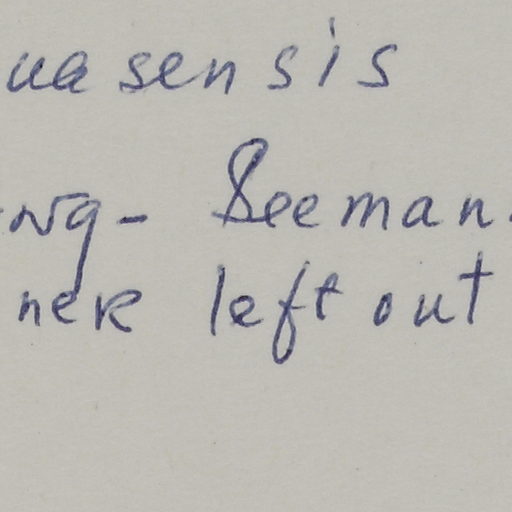 uasensis
Seeman
ner left out